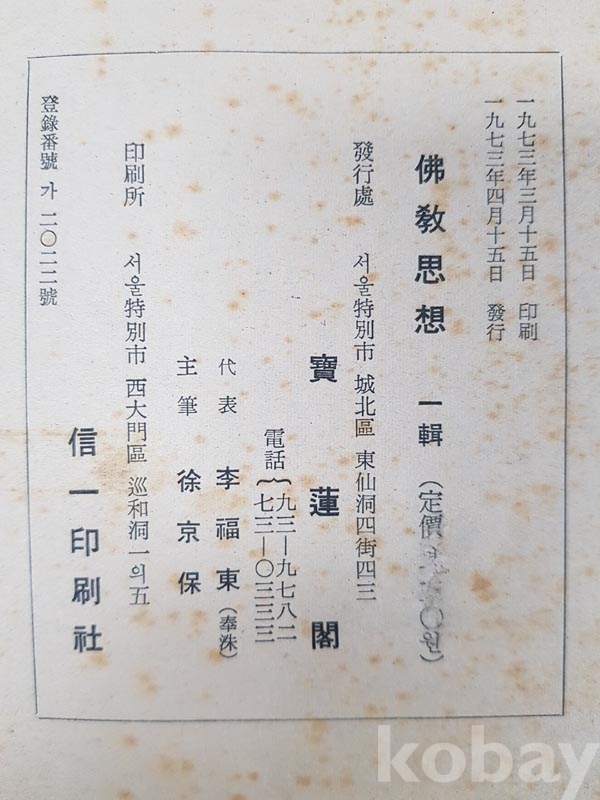 一九七三年三月十五日 印刷
一九七三年四月十五日 發行
佛敎思想 一輯 (定價 〇원)
發行處 서울特別市 城北區 東仙洞四街四三
寶蓮閣
電話 九三—九七八二
七三—〇三三三
代表 李福東(奉洙)
主筆 徐京保
印刷所 서울特別市 西大門區 巡和洞一의五
信一印刷社
登錄番號 가 二〇二二號
kobay